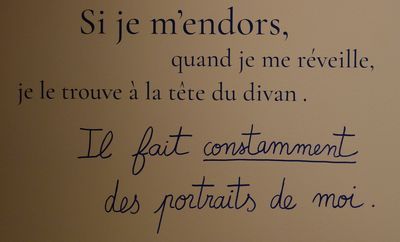 Si je m'endors,
quand je me réveille,
je le trouve à la tête du divan .
Il fait constamment
des portraits de moi .